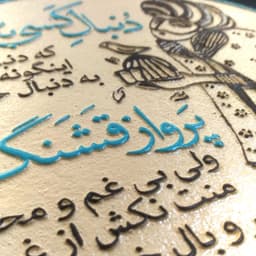 دنبالِ کَسی
که دن
اینگونه
به دنبال
پَرواز قَشَنگ
ولی بی غم و مح
منت نکش از غ
و بال